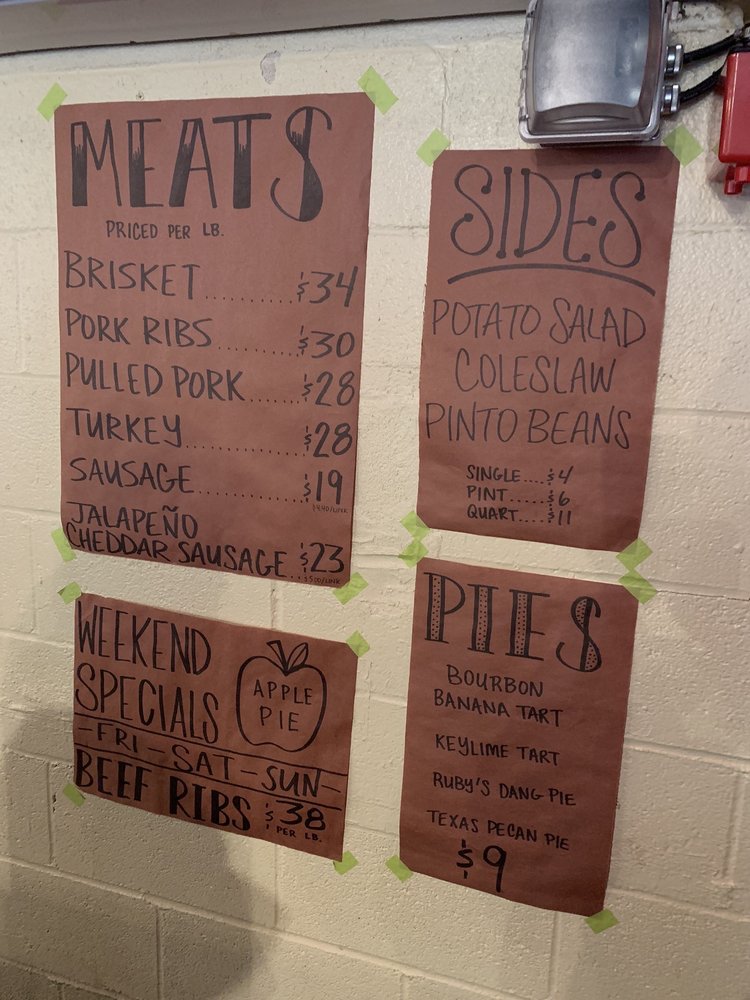 MEATS
PRICED PER LB.
BRISKET........$34
PORK RIBS........$30
PULLED PORK......$28
TURKEY..............$28
SAUSAGE............$19
$4.40/LINK
JALAPEÑO
CHEDDAR SAUSAGE..$23
$5.00/LINK
SIDES
POTATO SALAD
COLESLAW
PINTO BEANS
SINGLE....$4
PINT......$6
QUART....$11
WEEKEND
SPECIALS
APPLE
PIE
-FRI-SAT-SUN-
BEEF RIBS $38
PER LB.
PIES
BOURBON
BANANA TART
KEYLIME TART
RUBY'S DANG PIE
TEXAS PECAN PIE
$9